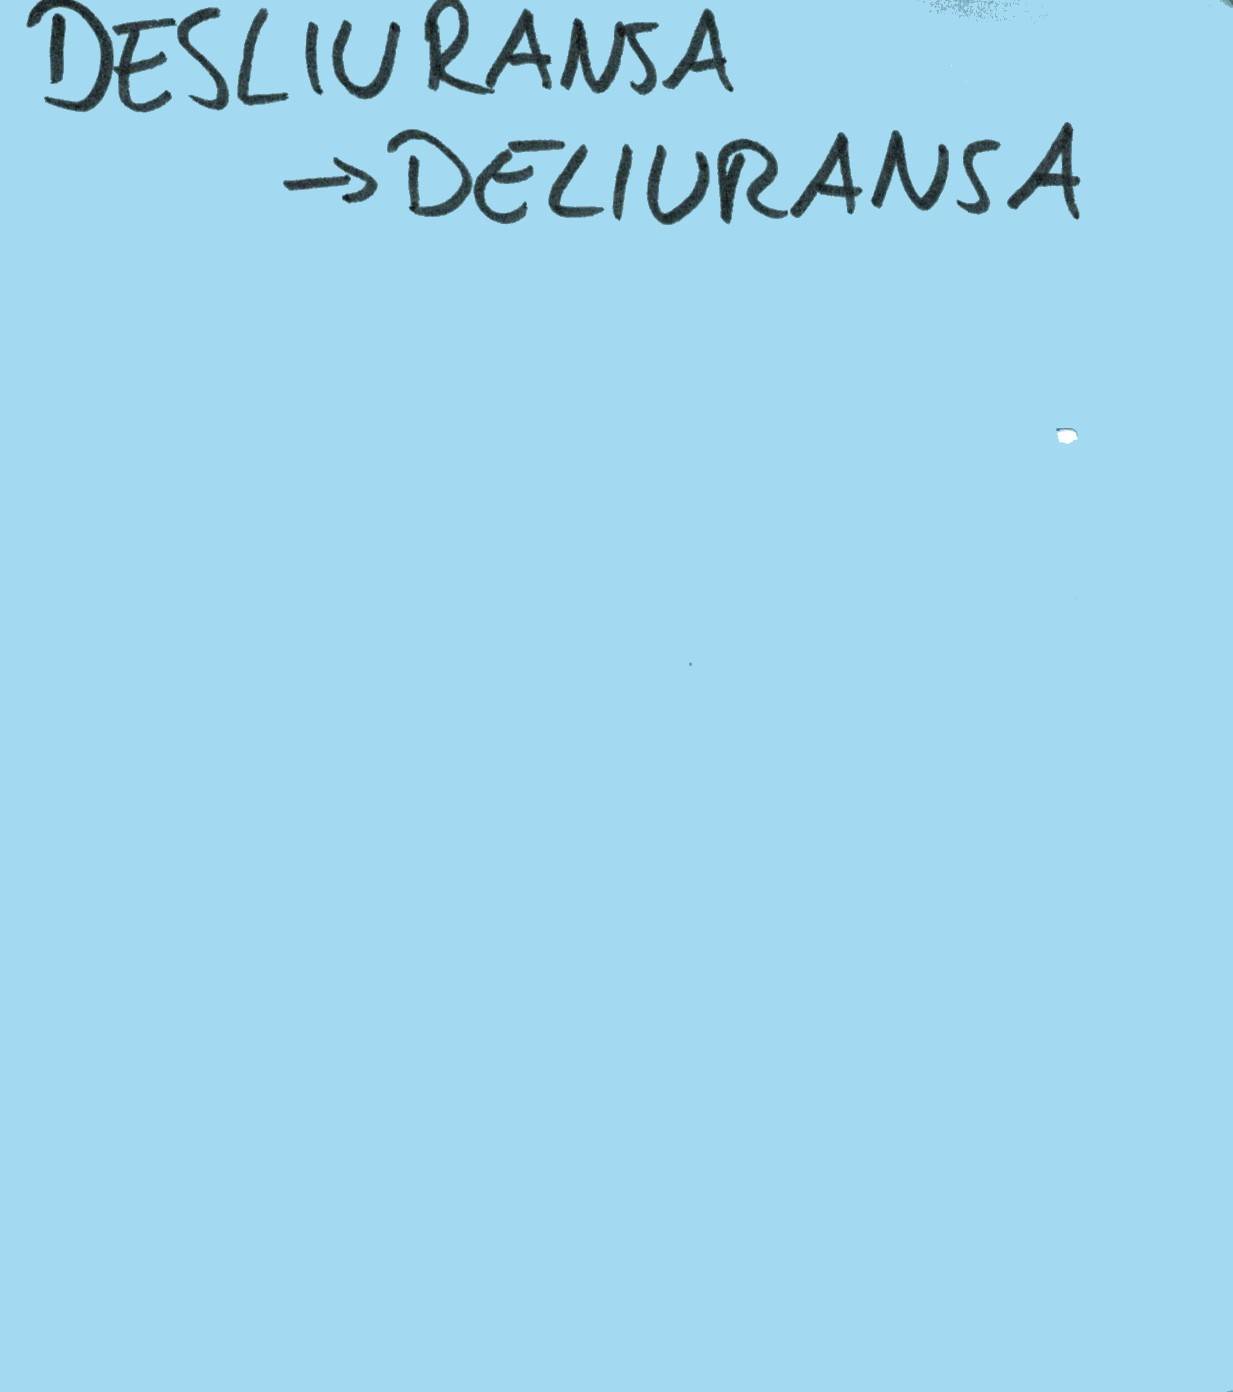 DESLIURANSA
→ DELIURANSA